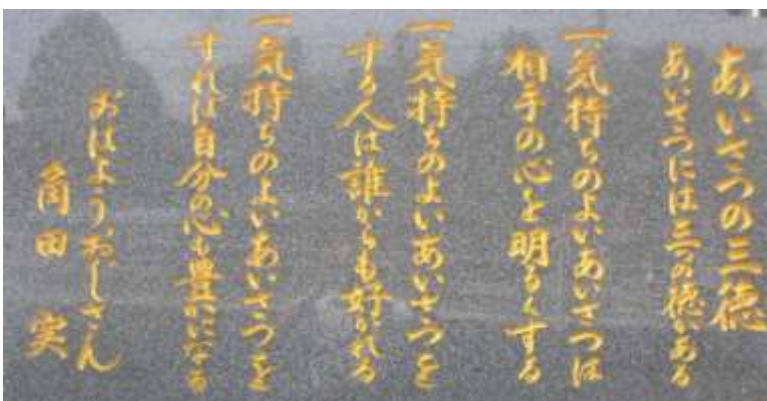 あいさつの三徳
あいさつには三つの徳がある
一、気持ちのよいあいさつは
相手の心を明るくする
一気持ちのよいあいさつを
する人は誰からも好かれる
一気持ちのよいあいさつを
すれば自分の心も豊かになる
おはようおじさん
角田 実